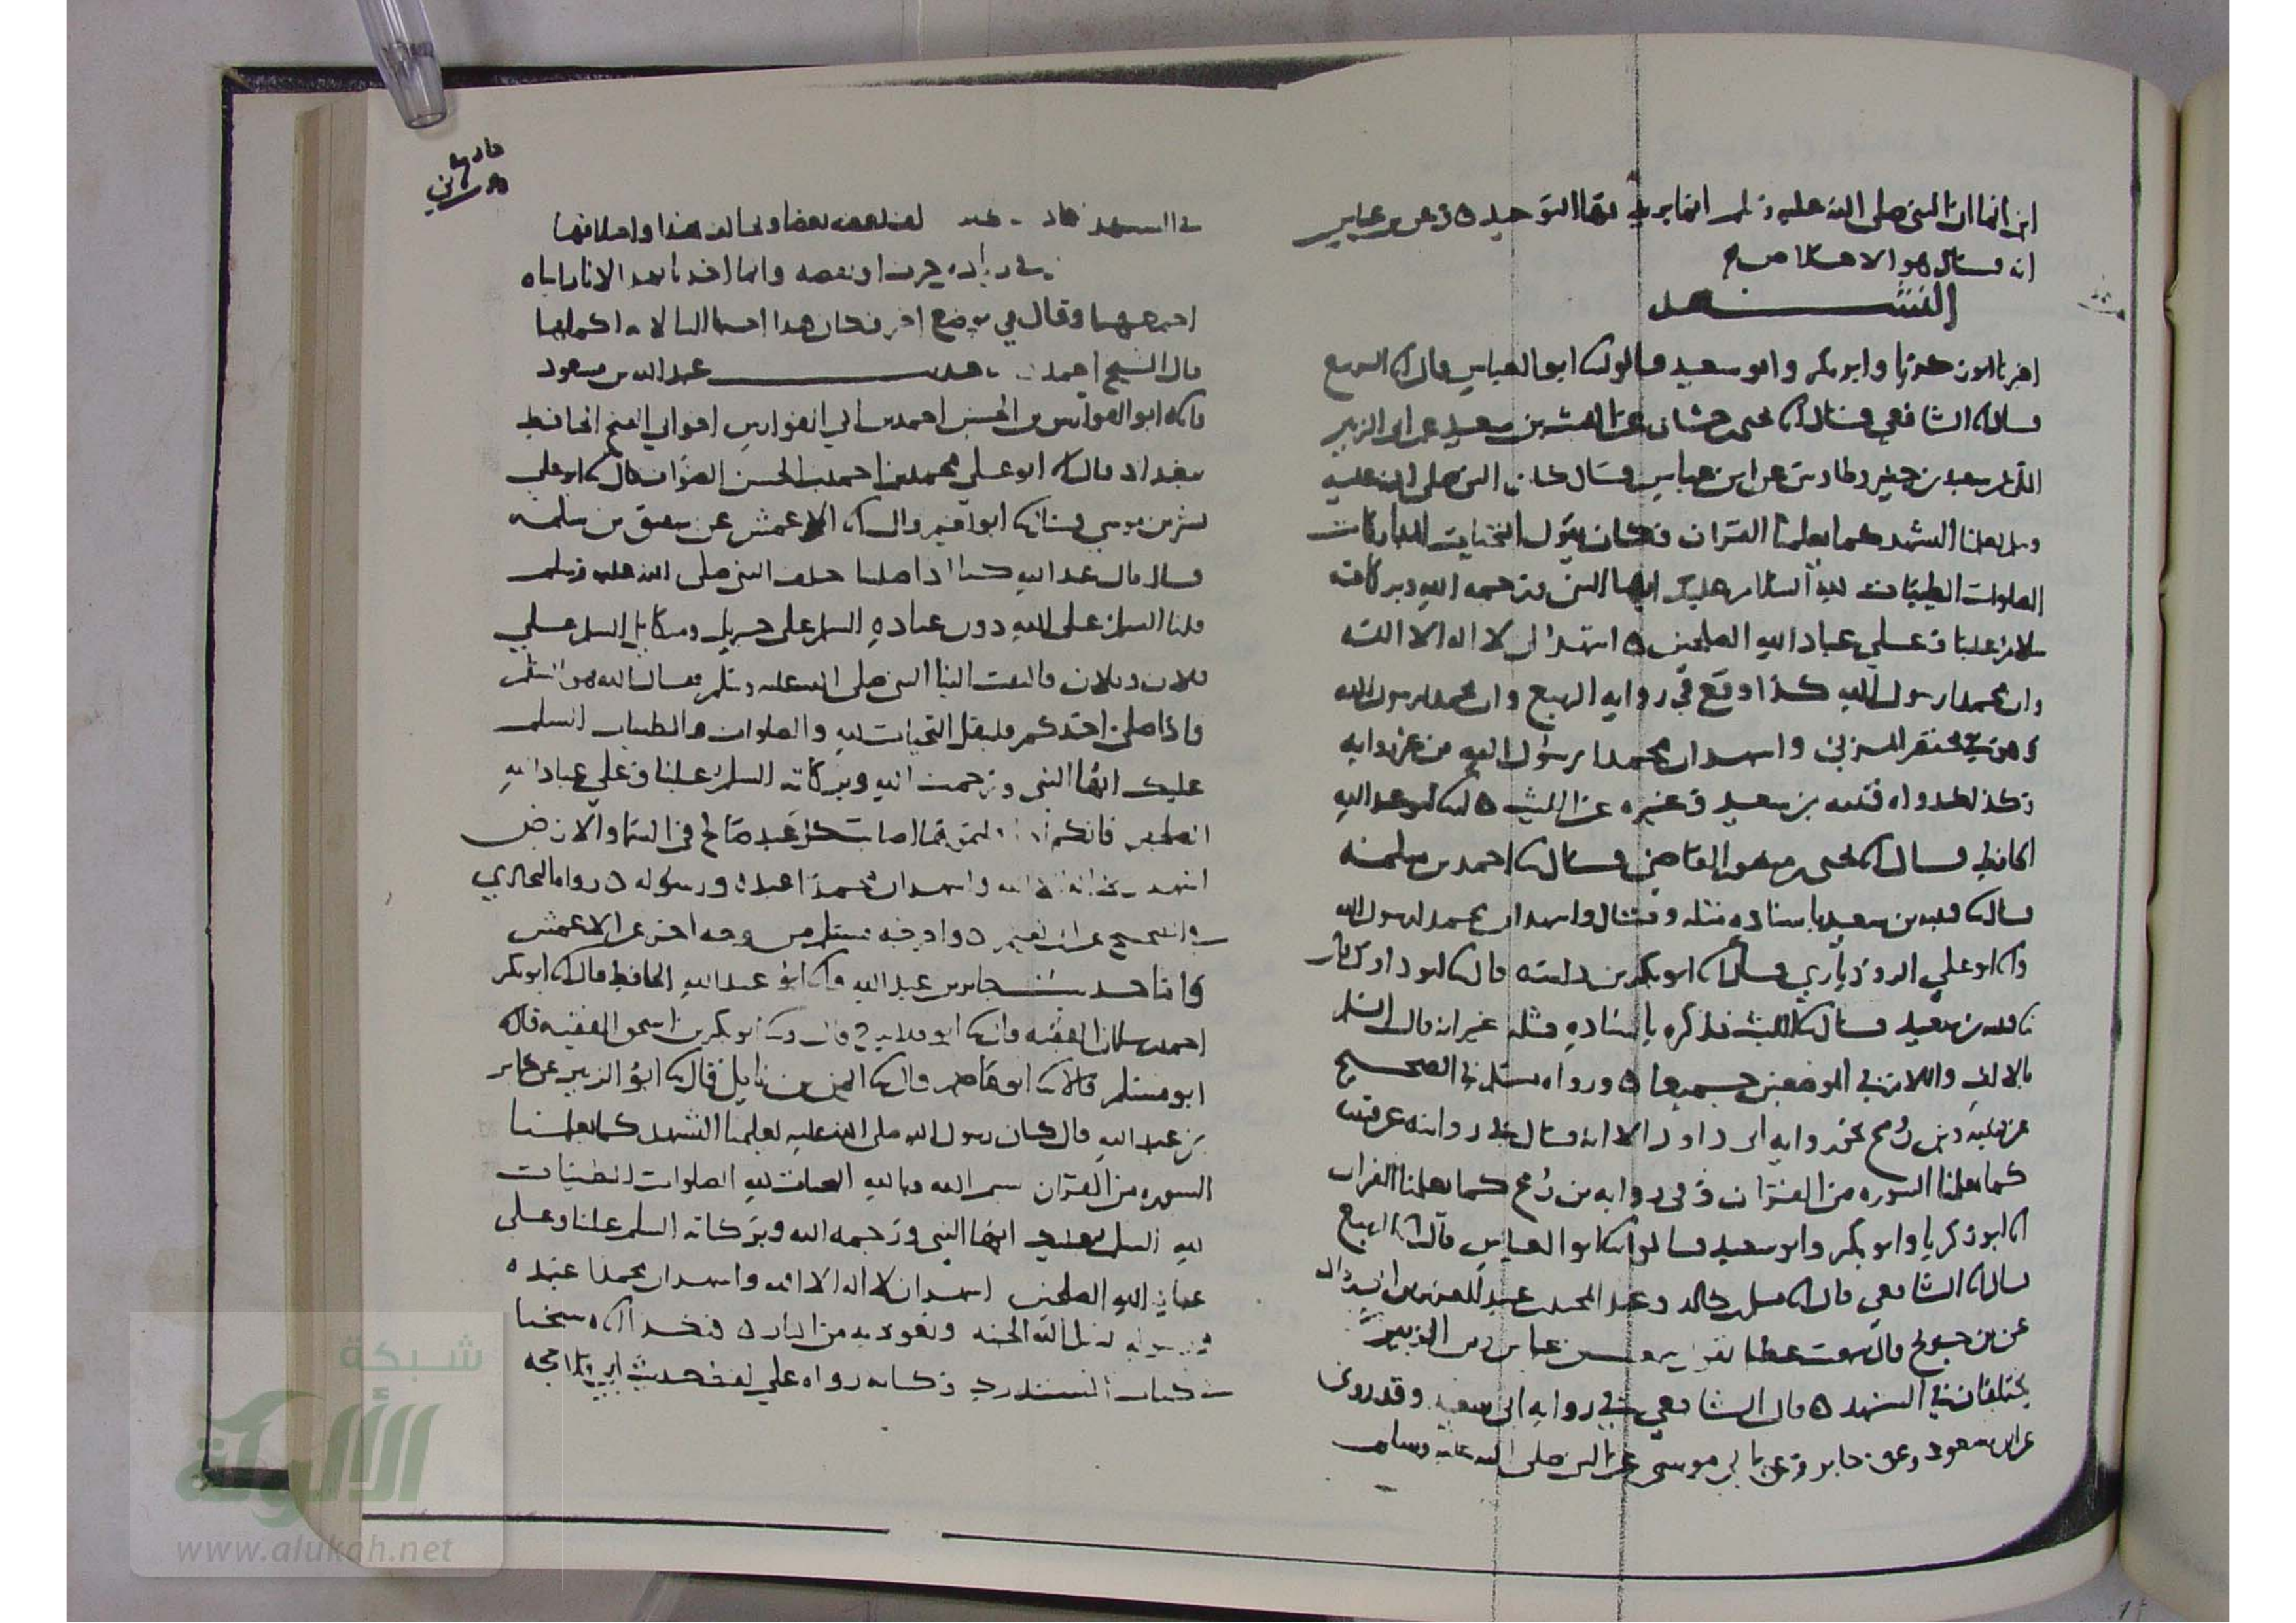 ان النبي صلى الله عليه وسلم انما يريد بها التوحيد ٥ وعن بن عباس
انه قال هو الاخلاص
التشهد
اخبرنا ابو زكريا وابو بكر وابو سعيد قالوا انا ابو العباس قال انا الربيع
قال انا الشافعي قال انا يحيى بن حسان عن الليث بن سعد عن ابي الزبير
المكي عن سعيد بن جبير وطاوس عن ابن عباس قال كان النبي صلى الله عليه
وسلم يعلمنا التشهد كما يعلمنا القران فكان يقول التحيات المباركات
الصلوات الطيبات لله السلام عليك ايها النبي ورحمه الله وبركاته
سلام علينا وعلى عباد الله الصلحين ٥ اشهد ان لا اله الا الله
وان محمدا رسول الله كذا وقع في روايه الربيع وان محمدا رسول الله
وهو في مختصر المزني واشهد ان محمدا رسول الله
وكذلك رواه قتيبه بن سعيد وغيره عن الليث ٥ انا ابو عبد الله
الحافظ قال انا يحيى بن منصور القاضي قال انا احمد بن سلمه
قال نا قتيبه بن سعيد باسناده مثله وقال واشهد ان محمدا رسول الله
وانا ابو علي الروذباري قال انا ابو بكر بن داسه قال نا ابو داود قال
نا قتيبه بن سعيد قال نا الليث فذكره باسناده مثله غير انه قال السلم
بالالف واللام في الموضعين جميعا ٥ ورواه مسلم في الصحيح
عن قتيبه وبن رمح نحو روايه ابي داود الا انه قال في روايته عن قتيبه
كما يعلمنا السوره من القران وفي روايه بن رمح كما يعلمنا القران
انا ابو زكريا وابو بكر وابو سعيد قالوا انا ابو العباس قال انا الربيع
قال انا الشافعي قال انا مسلم بن خالد وعبد المجيد بن عبد العزيز بن ابي رواد
عن بن جريج قال سمعت عطا يقول سمعت بن عباس وبن الزبير
يختلفان في التشهد ٥ قال الشافعي في روايه ابي سعيد وقد روى
عن ابن مسعود وعن جابر وعن ابي موسى عن النبي صلى الله عليه وسلم
في التشهد لفظ بعضه بعضا ويخالف هذا واختلافها
في زياده حرف او نقصه وانما اخذنا بهذا لانا رايناه
اجمعها وقال في موضع اخر فكان هذا احبها الينا لانه اكملها
قال الشيخ احمد حديث عبد الله بن مسعود
فانا ابو الفوارس بن الحسن بن احمد بن ابي الفوارس اخو ابي الفتح الحافظ
ببغداد قال انا ابو علي محمد بن احمد بن الحسن الصواف قال نا ابو علي
بشر بن موسى قال نا ابو نعيم قال نا الاعمش عن شقيق بن سلمه
قال قال عبد الله كنا اذا صلينا خلف النبي صلى الله عليه وسلم
قلنا السلم على الله دون عباده السلم على جبريل وميكايل السلم على
فلان وفلان فالتفت الينا النبي صلى الله عليه وسلم فقال ان الله هو السلم
فاذا صلى احدكم فليقل التحيات لله والصلوات والطيبات السلم
عليك ايها النبي ورحمت الله وبركاته السلم علينا وعلى عباد الله
الصلحين فانكم اذا قلتموها اصابت كل عبد صالح في السما والارض
اشهد ان لا اله الا الله واشهد ان محمدا عبده ورسوله ٥ رواه البخاري
في الصحيح عن ابي نعيم ٥ واخرجه مسلم من وجه اخر عن الاعمش
واما حديث جابر بن عبد الله فانا ابو عبد الله الحافظ قال انا ابو بكر
احمد بن سلمان الفقيه قال نا ابو قلابه ح قال ونا ابو بكر بن اسحق الفقيه قال انا
ابو مسلم قالا نا ابو عاصم قال نا ايمن بن نابل قال نا ابو الزبير عن جابر
بن عبد الله قال كان رسول الله صلى الله عليه يعلمنا التشهد كما يعلمنا
السوره من القران بسم الله وبالله التحيات لله الصلوات الطيبات
لله السلم عليك ايها النبي ورحمه الله وبركاته السلم علينا وعلى
عباد الله الصلحين اشهد ان لا اله الا الله واشهد ان محمدا عبده
ورسوله نسل الله الجنه ونعوذ به من النار ٥ شيخنا
في كتاب المستدرك وكانه رواه على لفظ حديث ابي قلابه
شبكة
الألوكة
www.alukah.net